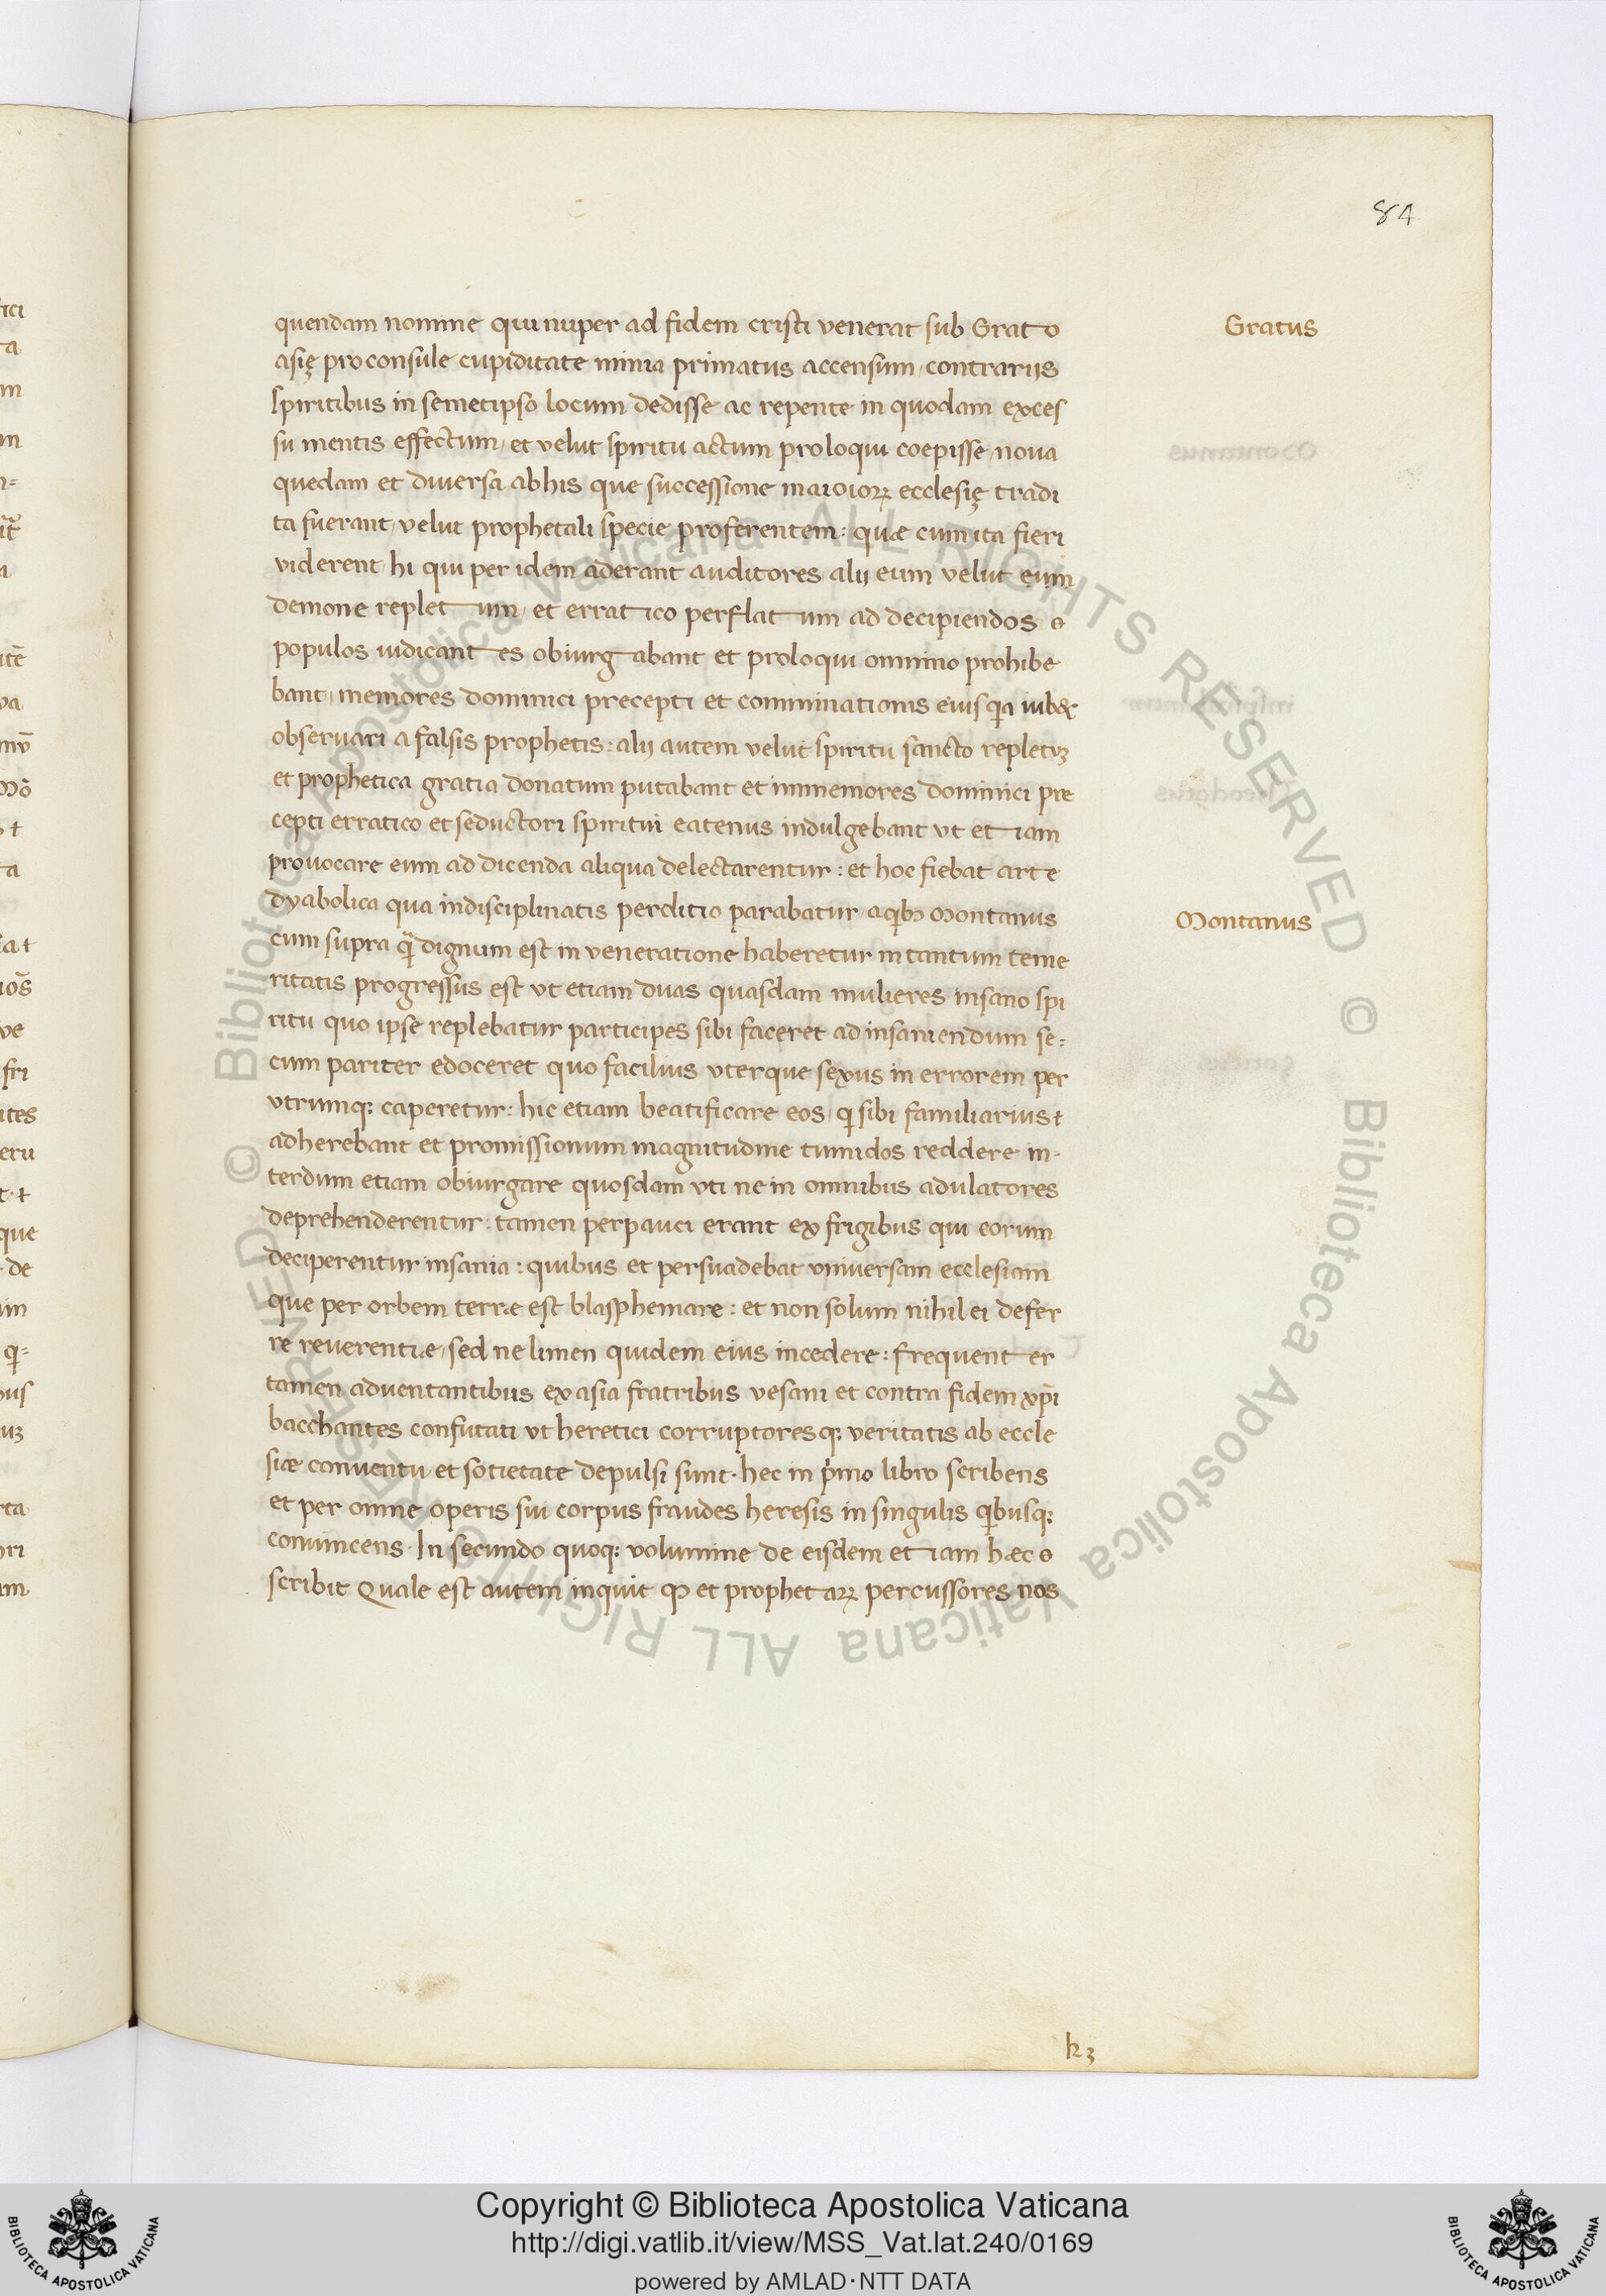 84
quendam nomine qui nuper ad fidem cristi venerat sub Grato
Gratus
asię proconsule cupiditate nimia primatus accensum, contrariis
spiritibus in semetipso locum dedisse ac repente in quodam exces
su mentis effectum, et velut spiritu actum proloqui coepisse nova
quedam et diversa ab his que successione maioioꝝ ecclesię tradi
ta fuerant, velut prophetali specie proferentem: quæ cum ita fieri
viderent hi qui per idem aderant auditores, alii eum velut eum
demone repletum, et erratico perflatum ad decipiendos
populos iudicantes obiurgabant et proloqui omnino prohibe
bant, memores dominici precepti et comminationis eius qa iubet
observari a falsis prophetis: alii autem velut spiritu sancto repletuꝫ
et prophetica gratia donatum putabant et inmemores dominici præ
cepti erratico et seductori spiritui eatenus indulgebant vt etiam
provocare eum ad dicenda aliqua delectarentur: et hoc fiebat arte
dyabolica qua indisciplinatis perditio parabatur a qb; Montanus
Montanus
cum supra q̃ dignum est in veneratione haberetur in tantum teme
ritatis progressus est vt etiam duas quasdam mulieres insano spi
ritu quo ipse replebatur participes sibi faceret ad insaniendum se=
cum pariter edoceret quo facilius vterque sexus in errorem per
vtrumq; caperetur: hic etiam beatificare eos, q sibi familiarius
adherebant et promissionum magnitudine tumidos reddere in-
terdum etiam obiurgare quosdam vti ne in omnibus adulatores
deprehenderentur: tamen perpauci erant ex frigibus qui eorum
deciperentur insania: quibus et persuadebat vniversam ecclesiam
que per orbem terræ est blasphemare: et non solum nihil ei defer
re reverentiæ, sed ne limen quidem eius incedere: frequenter
tamen adventantibus ex asia fratribus vesani et contra fidem xp̄i
bacchantes confutati vt heretici corruptoresq; veritatis ab eccle
siæ conventu et sotietate depulsi sunt. hec in pͥmo libro scribens
et per omne operis sui corpus fraudes heresis in singulis qbusq;
convincens. In secundo quoq; volumine de eisdem etiam hæc
scribit Quale est autem inquit ꝙ et prophetaꝝ percussores nos
k3
© Biblioteca Apostolica Vaticana ALL RIGHTS RESERVED © Biblioteca Apostolica Vaticana ALL RIGHTS RESERVED
Copyright © Biblioteca Apostolica Vaticana
http://digi.vatlib.it/view/MSS_Vat.lat.240/0169
powered by AMLAD·NTT DATA
BIBLIOTECA APOSTOLICA VATICANA
BIBLIOTECA APOSTOLICA VATICANA